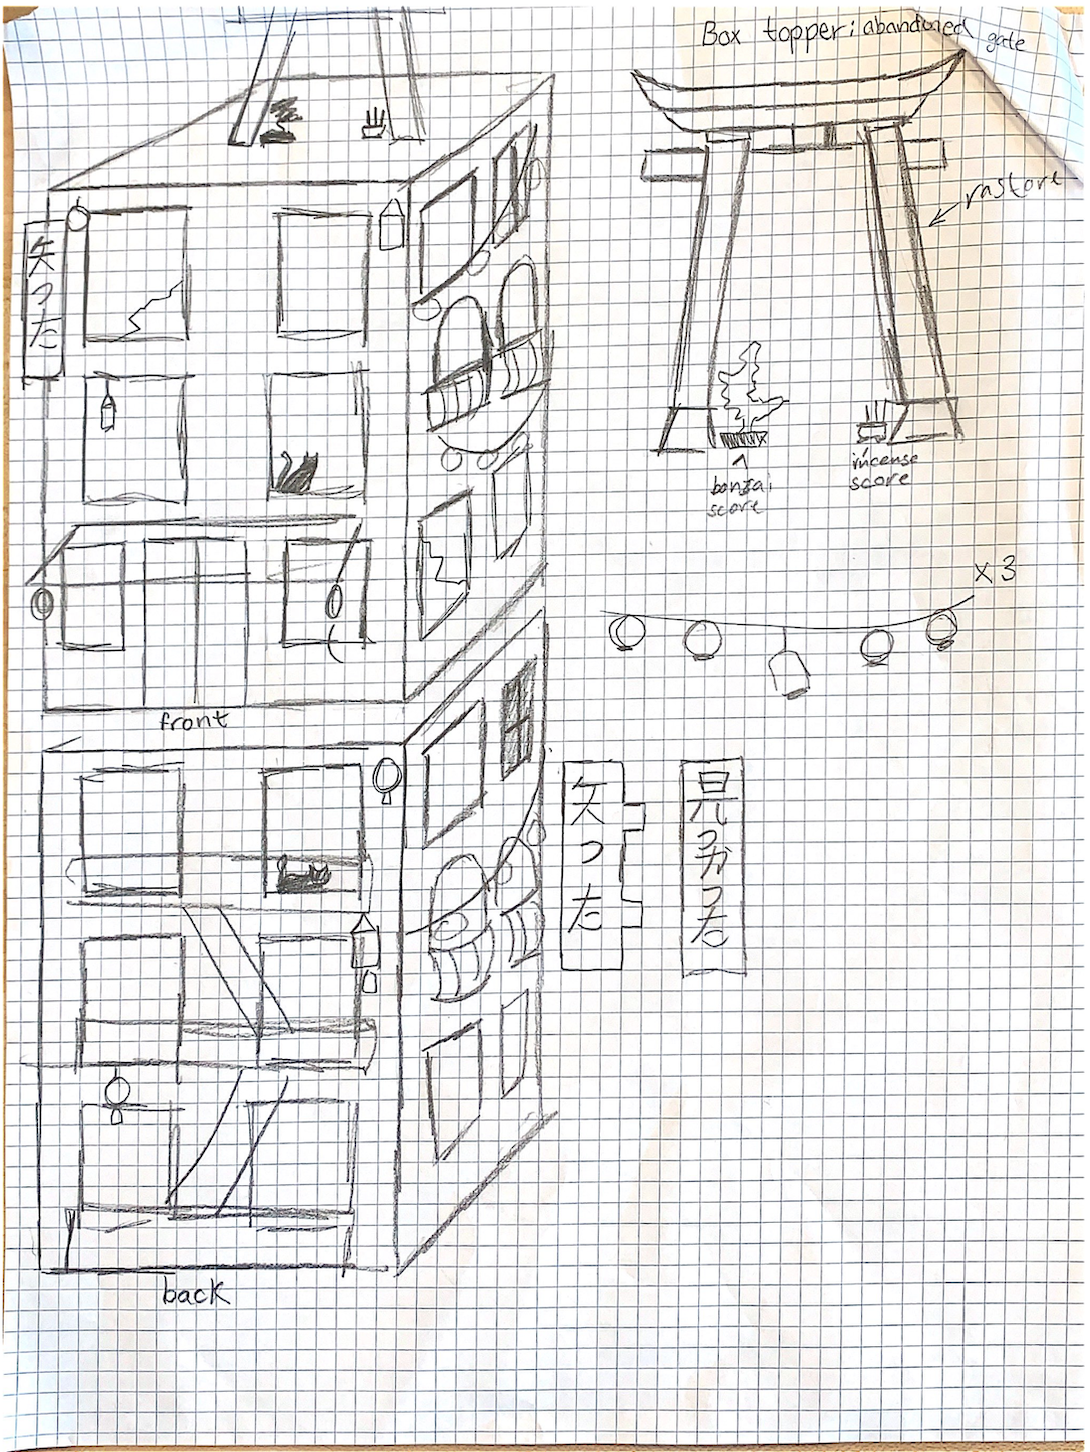 Box topper: abandoned gate
rastore
bonzai
score
incense
score
矢った
x 3
front
矢った
見つかった
back